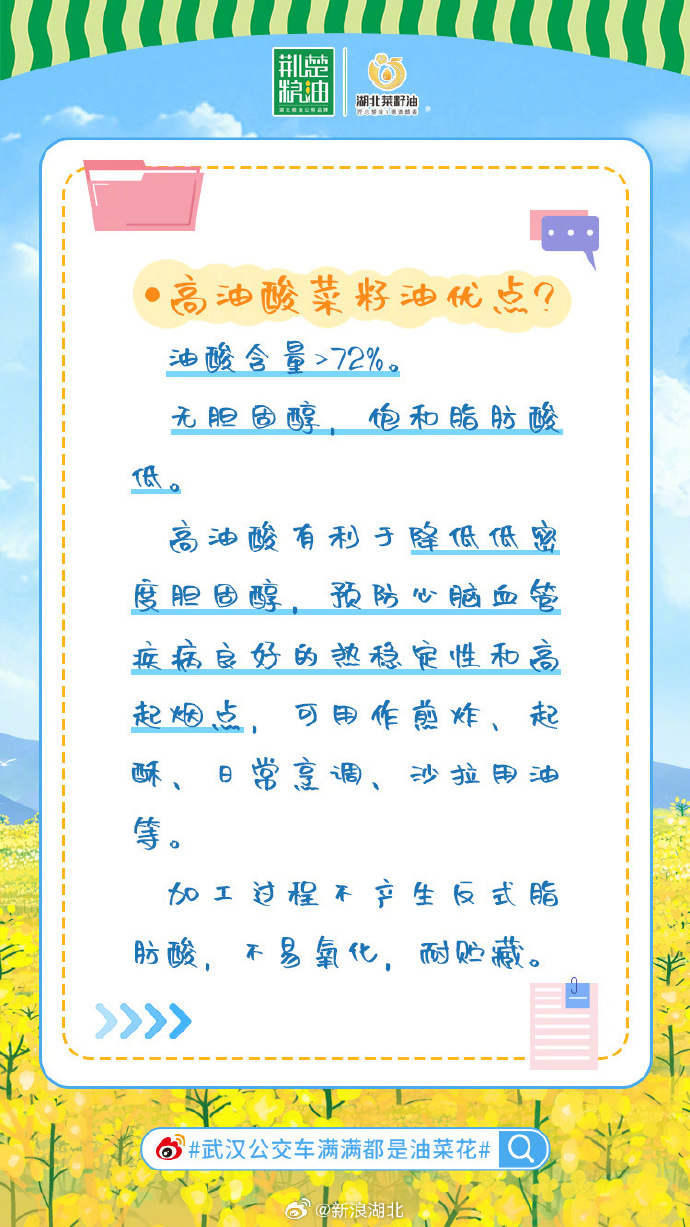 荆楚
粮油
湖北粮油公用品牌
湖北菜籽油
•高油酸菜籽油优点?
油酸含量>72%。
无胆固醇，饱和脂肪酸
低。
高油酸有利于降低低密
度胆固醇，预防心脑血管
疾病良好的热稳定性和高
起烟点，可用作煎炸、起
酥、日常烹调、沙拉用油
等。
加工过程不产生反式脂
肪酸，不易氧化，耐贮藏。
#武汉公交车满满都是油菜花#
@新浪湖北